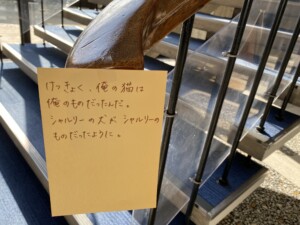 けっきょく、俺の猫は
俺のものだったんだ。
シャルリーの犬が シャルリーの
ものだったように。